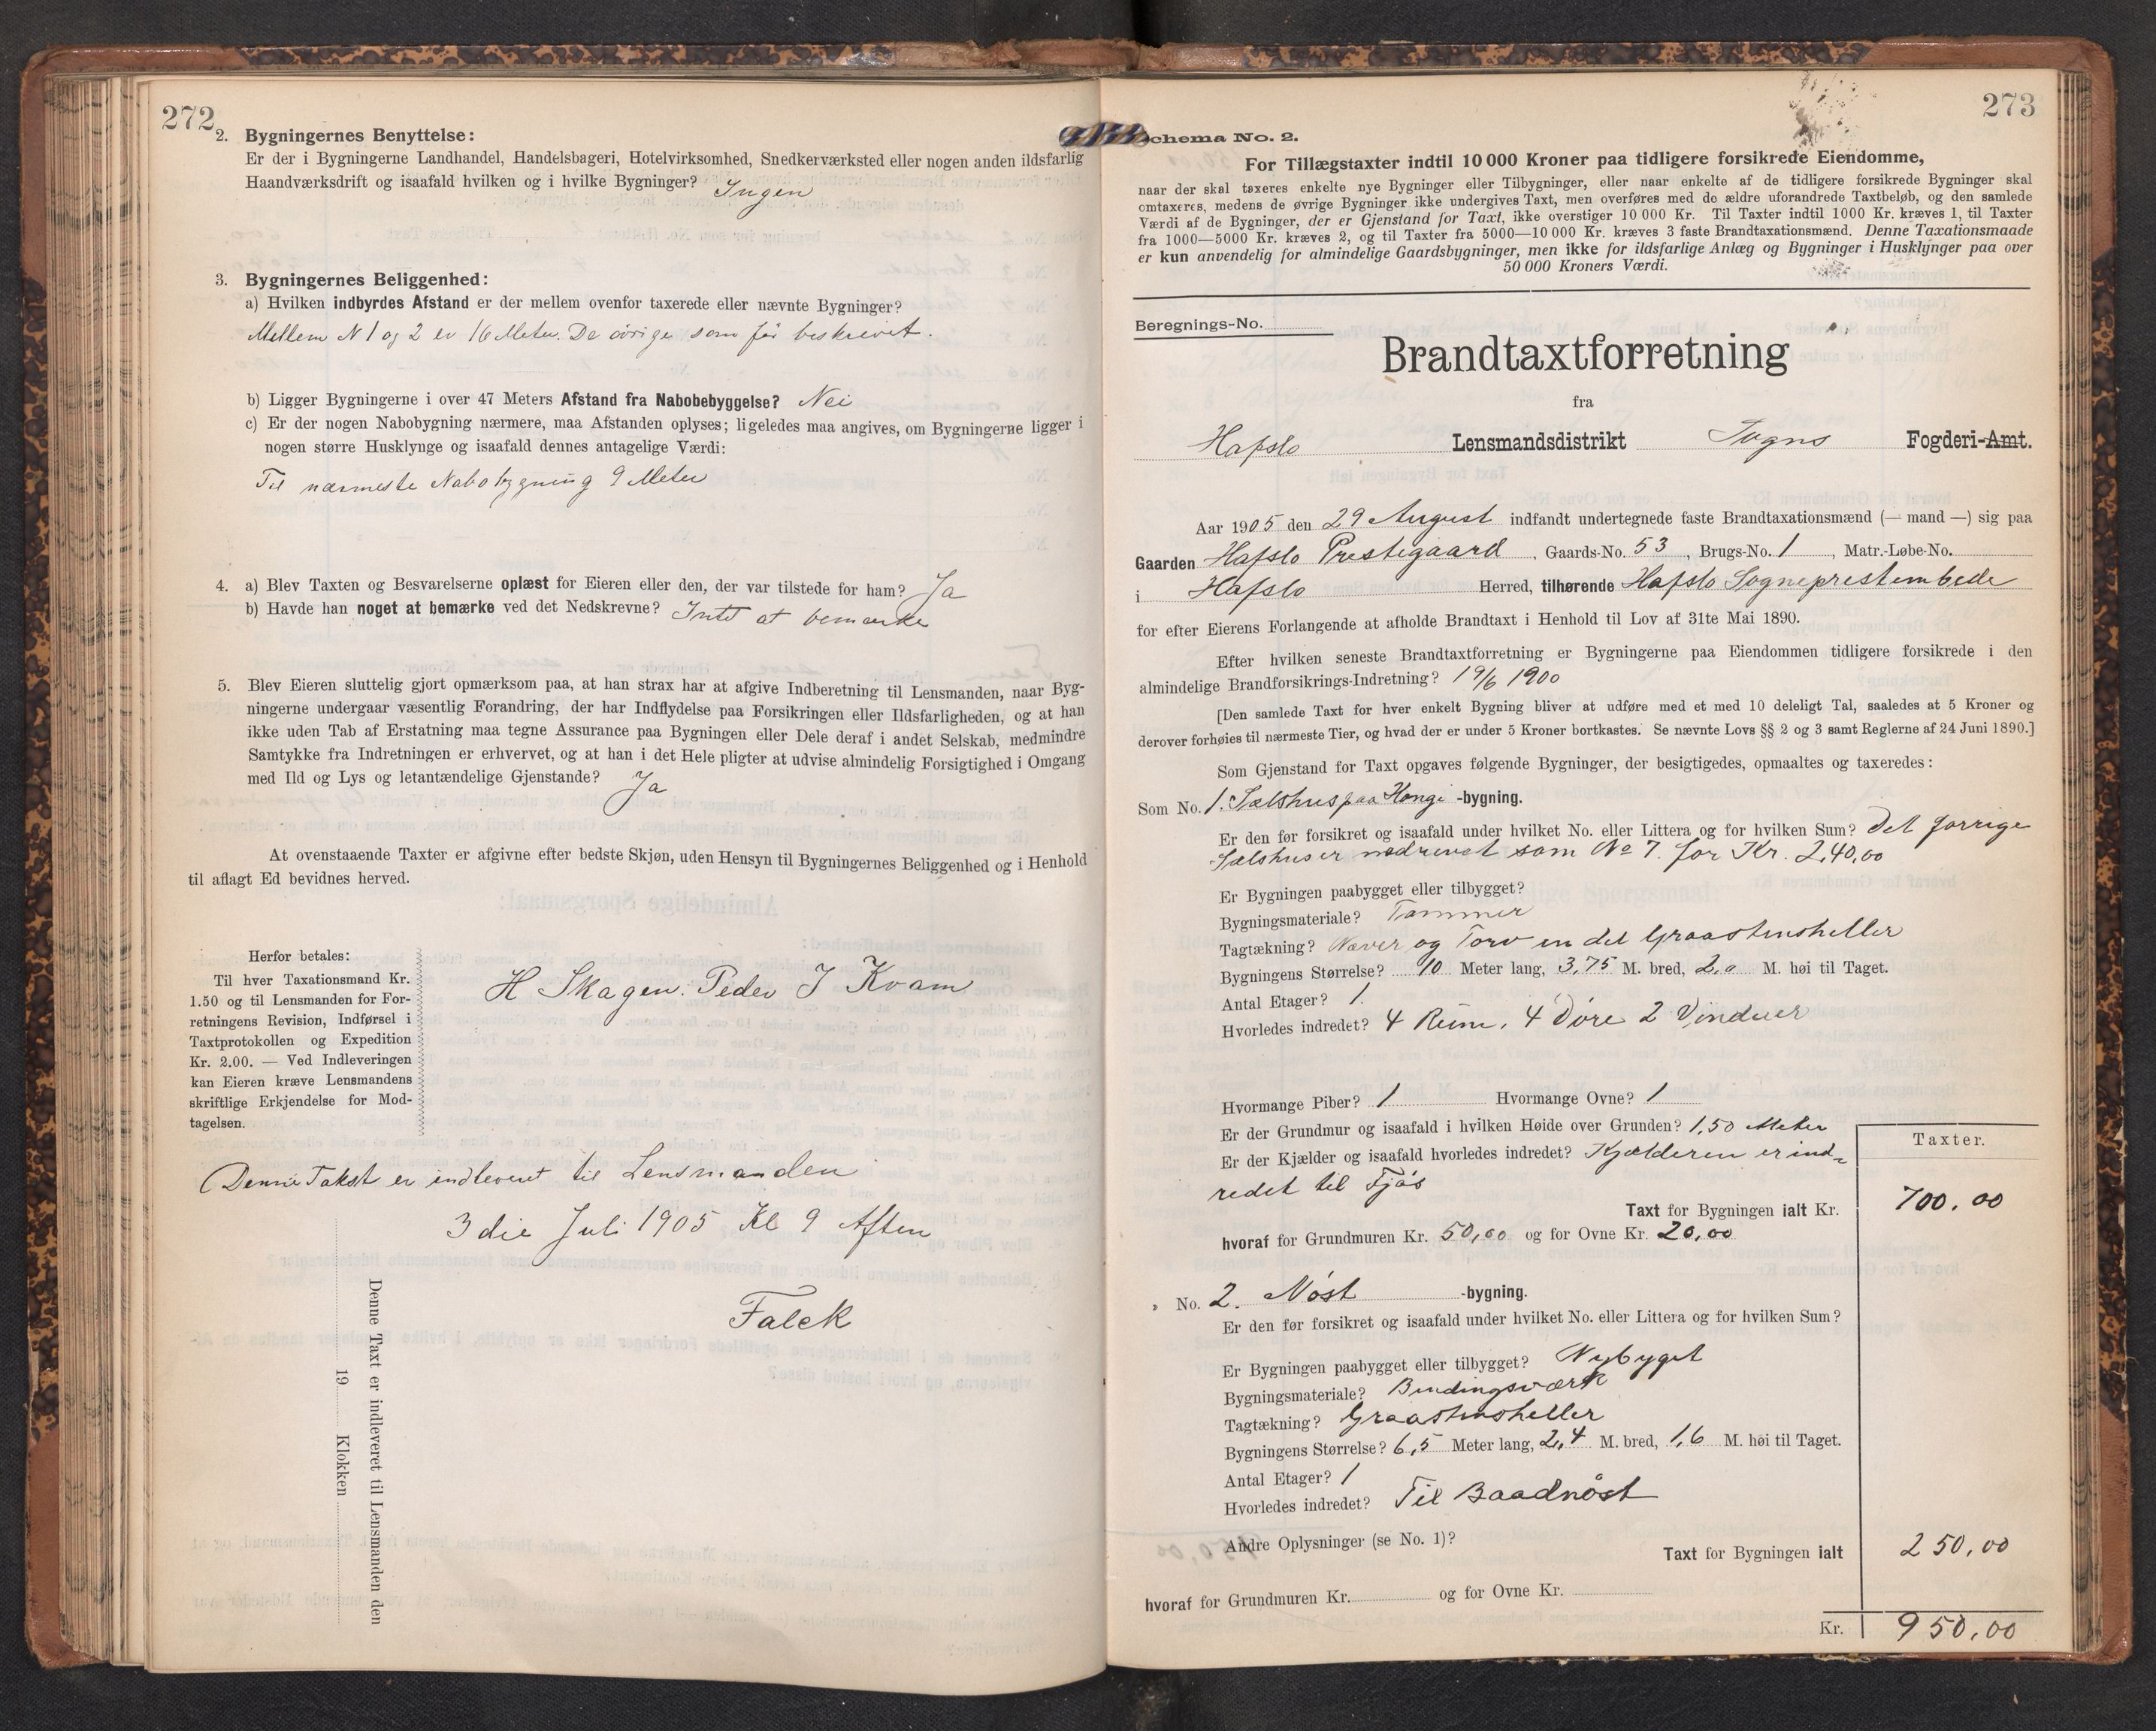 272
2. Bygningernes Benyttelse:
Er der i Bygningerne Landhandel, Handelsbageri, Hotelvirksomhed, Snedkerværksted eller nogen anden ildsfarlig
Haandværksdrift og isaafald hvilken og i hvilke Bygninger? Ingen
3. Bygningernes Beliggenhed:
a) Hvilken indbyrdes Afstand er der mellem ovenfor taxerede eller nævnte Bygninger?
Mellem N 1 og 2 er 16 Meter. De øvrige som før beskrevet.
b) Ligger Bygningerne i over 47 Meters Afstand fra Nabobebyggelse? Nei
c) Er der nogen Nabobygning nærmere, maa Afstanden oplyses; ligeledes maa angives, om Bygningerne ligger i
nogen større Husklynge og isaafald dennes antagelige Værdi:
Til nærmeste Nabobygning 9 Meter
4. a) Blev Taxten og Besvarelserne oplæst for Eieren eller den, der var tilstede for ham? Ja
b) Havde han noget at bemærke ved det Nedskrevne? Intet at bemærke
5. Blev Eieren sluttelig gjort opmærksom paa, at han strax har at afgive Indberetning til Lensmanden, naar Byg-
ningerne undergaar væsentlig Forandring, der har Indflydelse paa Forsikringen eller Ildsfarligheden, og at han
ikke uden Tab af Erstatning maa tegne Assurance paa Bygningen eller Dele deraf i andet Selskab, medmindre
Samtykke fra Indretningen er erhvervet, og at han i det Hele pligter at udvise almindelig Forsigtighed i Omgang
med Ild og Lys og letantændelige Gjenstande? Ja
At ovenstaaende Taxter er afgivne efter bedste Skjøn, uden Hensyn til Bygningernes Beliggenhed og i Henhold
til aflagt Ed bevidnes herved.
Herfor betales:
Til hver Taxationsmand Kr.
1.50 og til Lensmanden for For-
retningens Revision, Indførsel i
Taxtprotokollen og Expedition
Kr. 2.00. — Ved Indleveringen
kan Eieren kræve Lensmandens
skriftlige Erkjendelse for Mod-
tagelsen.
H Skagen. Peder J Kvam
Denne Takst er indleveret til Lensmanden
3die Juli 1905 Kl 9 Aften
Falck
Denne Taxt er indleveret til Lensmanden den
19 Klokken
273
Schema No. 2.
For Tillægstaxter indtil 10 000 Kroner paa tidligere forsikrede Eiendomme,
naar der skal taxeres enkelte nye Bygninger eller Tilbygninger, eller naar enkelte af de tidligere forsikrede Bygninger skal
omtaxeres, medens de øvrige Bygninger ikke undergives Taxt, men overføres med de ældre uforandrede Taxtbeløb, og den samlede
Værdi af de Bygninger, der er Gjenstand for Taxt, ikke overstiger 10 000 Kr. Til Taxter indtil 1000 Kr. kræves 1, til Taxter
fra 1000—5000 Kr. kræves 2, og til Taxter fra 5000—10 000 Kr. kræves 3 faste Brandtaxationsmænd. Denne Taxationsmaade
er kun anvendelig for almindelige Gaardsbygninger, men ikke for ildsfarlige Anlæg og Bygninger i Husklynger paa over
50 000 Kroners Værdi.
Beregnings-No.
Brandtaxtforretning
fra
Hafslo Lensmandsdistrikt Sogns Fogderi-Amt.
Aar 1905 den 29 August indfandt undertegnede faste Brandtaxationsmænd (— mand —) sig paa
Gaarden Hafslo Prestegaard, Gaards-No. 53, Brugs-No. 1, Matr.-Løbe-No.
i Hafslo Herred, tilhørende Hafslo Sogneprestembede
for efter Eierens Forlangende at afholde Brandtaxt i Henhold til Lov af 31te Mai 1890.
Efter hvilken seneste Brandtaxtforretning er Bygningerne paa Eiendommen tidligere forsikrede i den
almindelige Brandforsikrings-Indretning? 19/6 1900
[Den samlede Taxt for hver enkelt Bygning bliver at udføre med et med 10 deleligt Tal, saaledes at 5 Kroner og
derover forhøies til nærmeste Tier, og hvad der er under 5 Kroner bortkastes. Se nævnte Lovs §§ 2 og 3 samt Reglerne af 24 Juni 1890.]
Som Gjenstand for Taxt opgaves følgende Bygninger, der besigtigedes, opmaaltes og taxeredes:
Som No. 1. Sælshus paa Hongi -bygning.
Er den før forsikret og isaafald under hvilket No. eller Littera og for hvilken Sum? Det forrige
Sælshus er nedrevet som No 7. for Kr. 240,00
Er Bygningen paabygget eller tilbygget?
Bygningsmateriale? Tømmer
Tagtækning? Næver og Torv en del Graastensheller
Bygningens Størrelse? 10 Meter lang, 3,75 M. bred, 2,0 M. høi til Taget.
Antal Etager? 1.
Hvorledes indredet? 4 Rum, 4 Døre 2 Vinduer
Hvormange Piber? 1 Hvormange Ovne? 1
Er der Grundmur og isaafald i hvilken Høide over Grunden? 1,50 Meter
Er der Kjælder og isaafald hvorledes indredet? Kjælderen er ind-
redet til Fjøs
Taxter.
Taxt for Bygningen ialt Kr. 700,00
hvoraf for Grundmuren Kr. 50,00 og for Ovne Kr. 20,00
» No. 2. Nøst -bygning.
Er den før forsikret og isaafald under hvilket No. eller Littera og for hvilken Sum?
Er Bygningen paabygget eller tilbygget? Nybyget
Bygningsmateriale? Bindingsværk
Tagtækning? Graastensheller
Bygningens Størrelse? 6,5 Meter lang, 2,4 M. bred, 1,6 M. høi til Taget.
Antal Etager? 1
Hvorledes indredet? Til Baadnøst
Andre Oplysninger (se No. 1)?
Taxt for Bygningen ialt 250,00
hvoraf for Grundmuren Kr. og for Ovne Kr.
Kr. 950,00